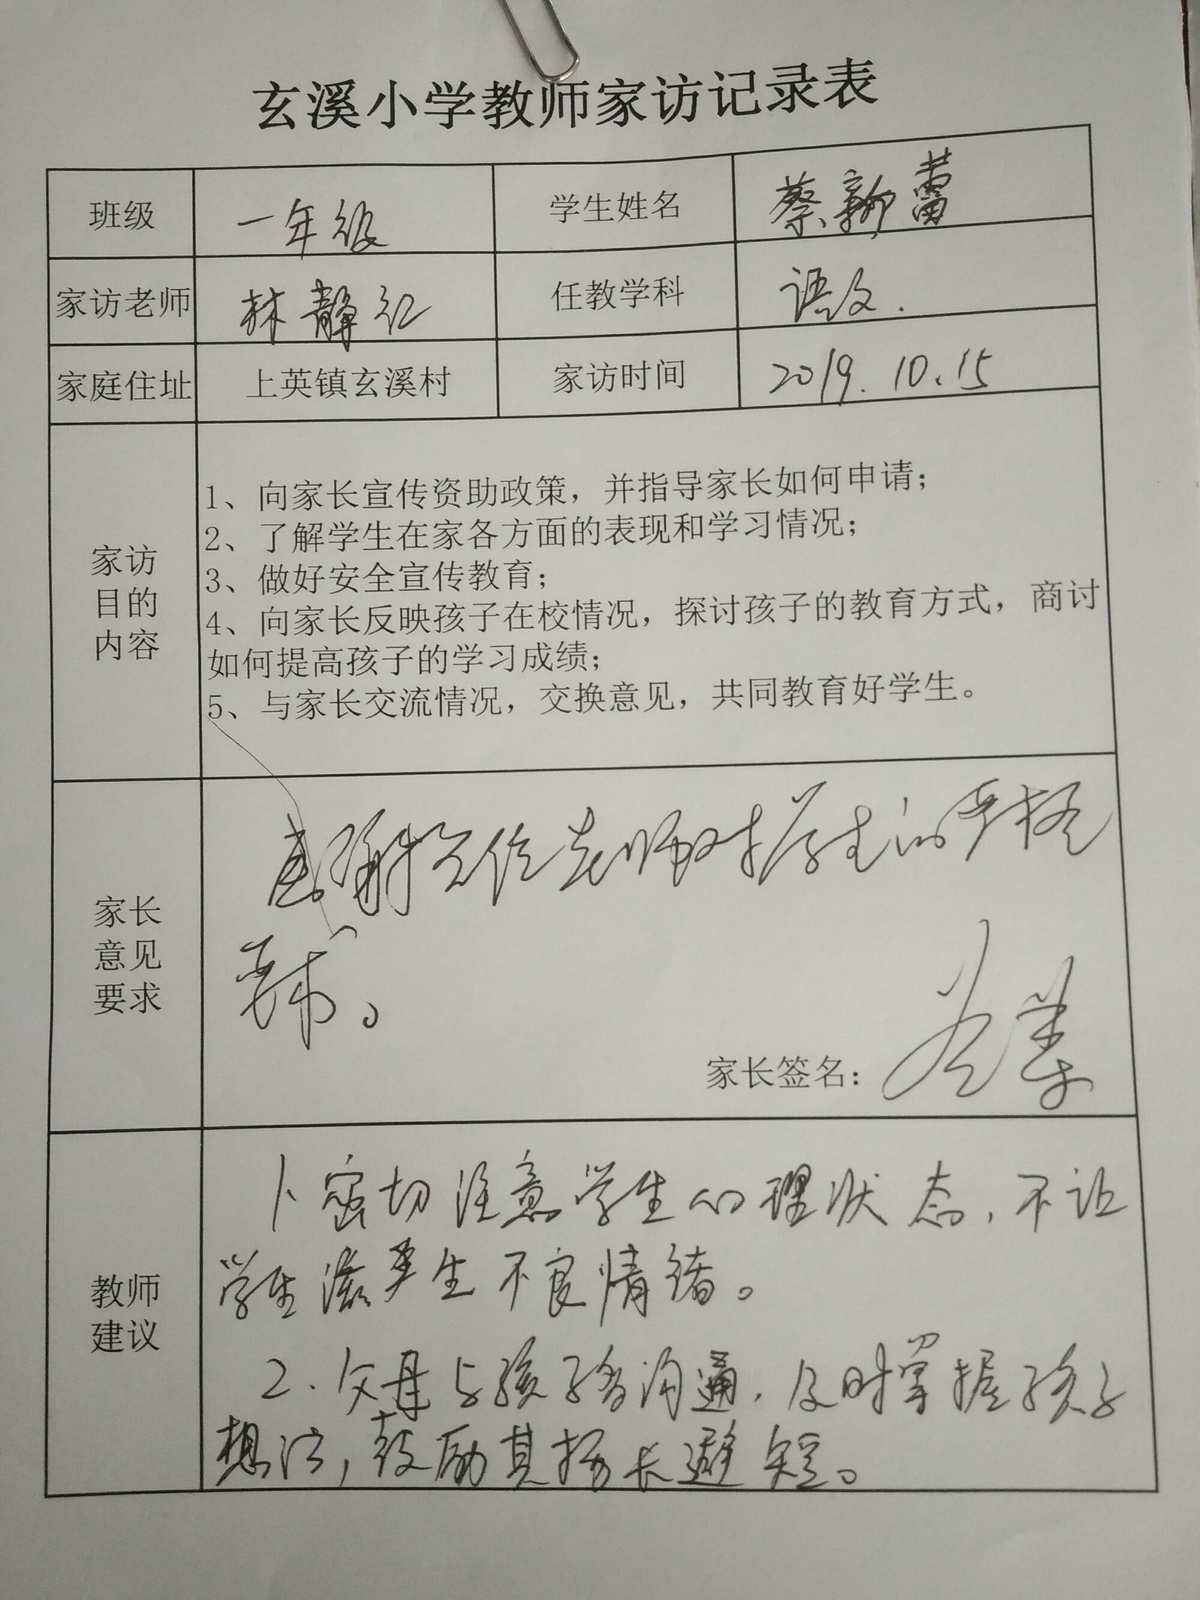 玄溪小学教师家访记录表
班级 一年级 学生姓名 蔡新蕾
家访老师 林静红 任教学科 语文.
家庭住址 上英镇玄溪村 家访时间 2019.10.15
家访
目的
内容
1、向家长宣传资助政策，并指导家长如何申请；
2、了解学生在家各方面的表现和学习情况；
3、做好安全宣传教育；
4、向家长反映孩子在校情况，探讨孩子的教育方式，商讨
如何提高孩子的学习成绩；
5、与家长交流情况，交换意见，共同教育好学生。
家长
意见
要求
感谢各位老师对学生的严格
要求。
家长签名：
教师
建议
1、密切注意学生心理状态，不让
学生滋生不良情绪。
2.父母与孩子多沟通，及时掌握孩子
想法，鼓励其扬长避短。